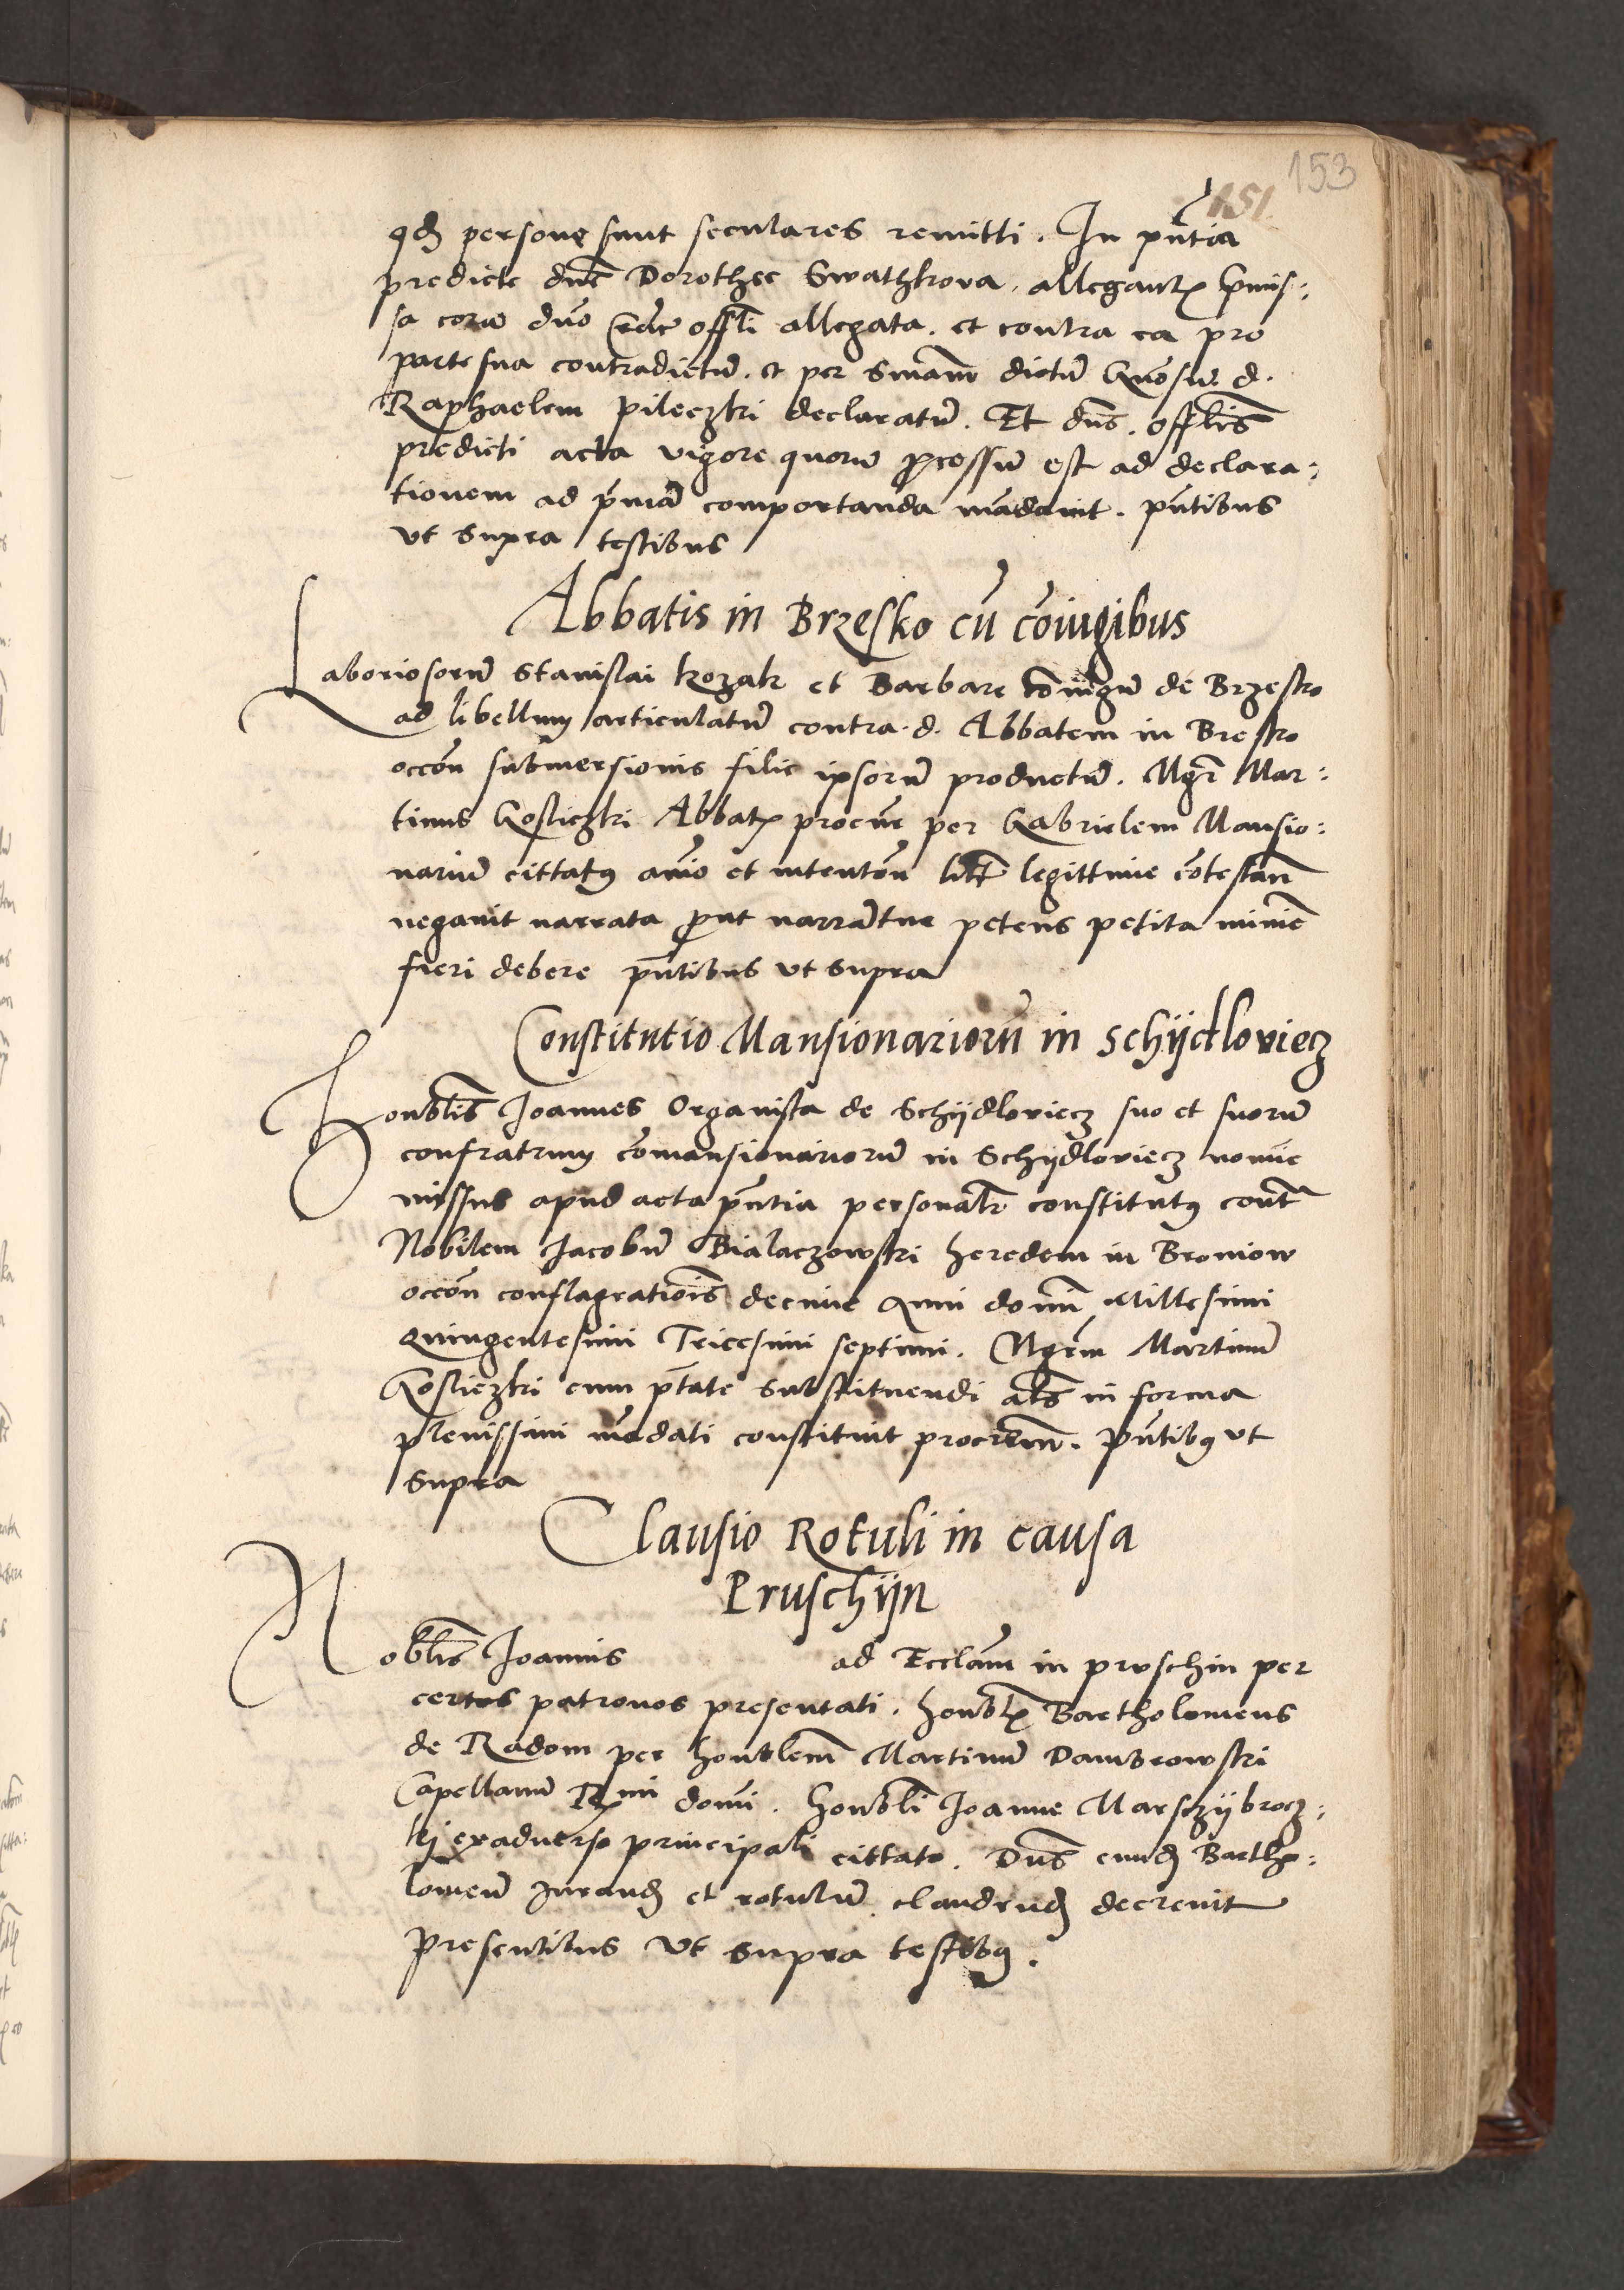 153
151.
qđ persone sunt seculares remitti. In pñtia
predicte dñe Dorothee Swathkova, allegantꝭ p̄mis:
sa corā dño offli allegata. et contra ea pro
parte sua contradictū. et per smām dictū Gñosū. d.
Raphaelem Pileczki declaratū. Et dñs. offlis
predicti acta vigore quorū p̱cessū est ad declara:
tionem ad pmā comportanda mādavit. pñtibus
vt supra testibus
Abbatis in Brzesko cū cōiugibus
Laboriosorū Stanislai Kozak et Barbare coniugū de Brzesko
ad libellum articulatū contra. d. Abbatem in Bresko
occōn submersionis filie ipsorū productū. Mgr̄ Mar:
tinus Gosliczki Abbatꝭ procūr per Gabrielem Mansio:
nariū cittatꝰ aīo et intentōn litē legittime cōtestan̄
negavit narrata p̱ut narrātur petens petita minīe
fieri debere pñtibus vt supra
Constitutio Mansionariorū in Schijdloviecz
Honblis Joannes Organista de Schijdloviecz suo et suorū
confratrum cōmansionariorū in Schijdloviecz nomīe
missus apud acta pñtia personalr̄ constitutꝰ cont̄
Nobilem Jacobū Bialaczowski heredem in Broniow
occōn conflagrationis decime Anni domīni Millesimi
Quingentesimi Tricesimi septimi. Mgrm̄ Martinū
Gosliczki cum ptāte substituendi als̄ in forma
plenissimi mādati constituit procrem̄. Pñtibꝰ vt
supra
Clausio Rotuli in causa
Pruschijn
Noblis Joannis ad Eccl̄am in pruschin per
certos patronos presentati. honblꝭ Bartholomeus
de Radom per honblem̄ Martinū Dambrowski
Capellanū Rmi domī. honbli Joanne Marsczijbrocz:
kj exadverso principali cittato. Dñs eundꝫ Bartho:
lomeū Jurandꝫ et rotulū claudendꝫ decrevit
presentibus vt supra testibꝰ.